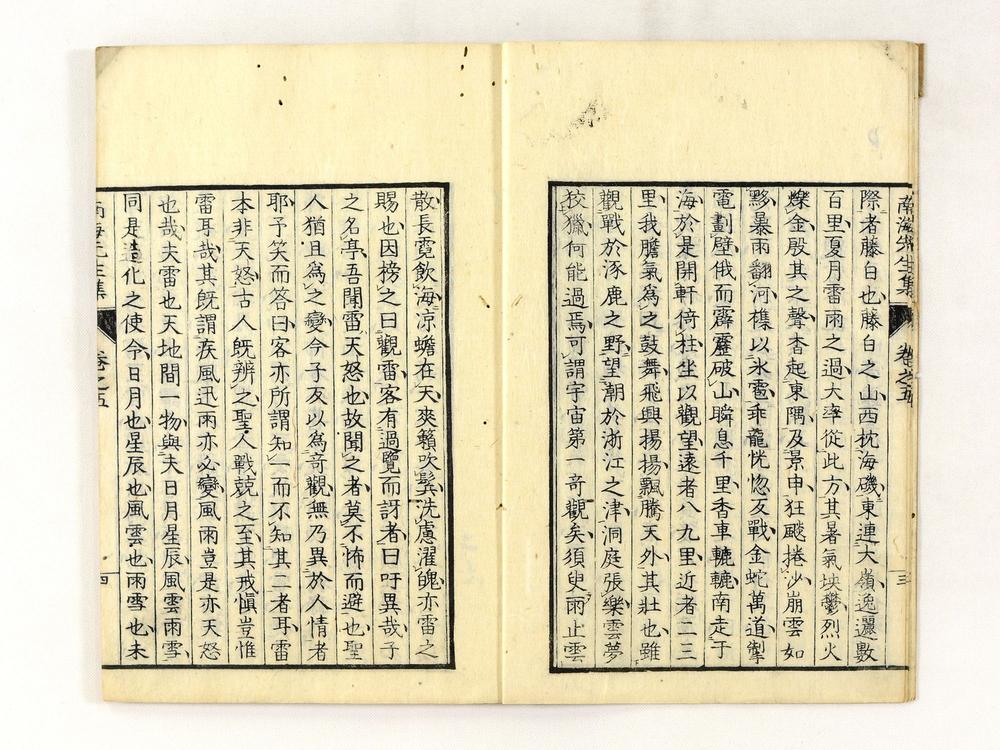 南海先生集 卷之五 三
際者藤白也藤白之山西枕海磯東連大嶺逸邐數
百里夏月雷雨之過大率從此方其暑氣坱鬱烈火
爍金殷其之聲杳起東隅及景申狂颷捲沙崩雲如
黟暴雨翻河樵以氷雹乖龍恍惚亙戰金蛇萬道掣
電劃壁俄而霹靂破山瞬息千里香車轆轆南走于
海於是開軒倚柱坐以觀望遠者八九里近者二三
里我膽氣爲之鼓舞飛興揚揚飄騰天外其壯也雖
觀戰於涿鹿之野望潮於浙江之津洞庭張樂雲夢
狡獵何能過焉可謂宇宙第一奇觀矣須臾雨止雲
散長霓飲海凉蟾在天爽籟吹鬂洗慮濯魄亦雷之
賜也因榜之曰觀雷客有過覽而訝者曰吁異哉子
之名亭吾聞雷天怒也故聞之者莫不怖而避也聖
人猶且爲之變今子反以爲奇觀無乃異於人情者
耶予笑而答曰客亦所謂知一而不知其二者耳雷
本非天怒古人既辨之聖人戰兢之至其戒愼豈惟
雷耳哉其既謂疾風迅雨亦必變風雨豈是亦天怒
也哉夫雷也天地間一物與夫日月星辰風雲雨雪
同是造化之使令日月也星辰也風雲也雨雪也未
南海先生集 卷之五 四